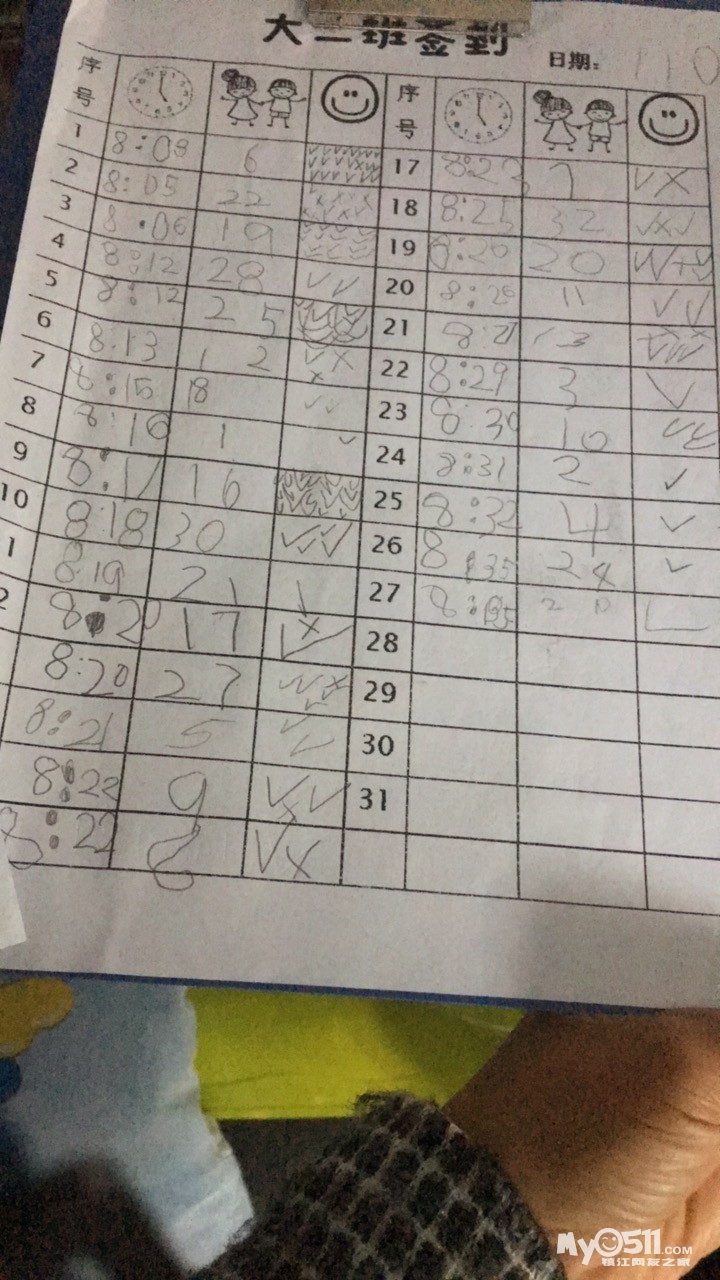 大二班签到
日期: 110
序号 序号
1 8:09 6 17 8:23 7
2 8:05 22 18 8:25 32
3 8:06 19 19 20
4 8:12 28 20 11
5 8:12 25 21 13
6 8:13 12 22 8:29 3
7 8:15 18 23 8:30 10
8 8:16 1 24 8:31 2
9 8:17 16 25 8:32 4
10 8:18 30 26 8:35 24
1 8:19 21 27
2 8:20 17 28
8:20 27 29
8:21 5 30
8:22 9 31
8
MyO511.COM
镇江网友之家